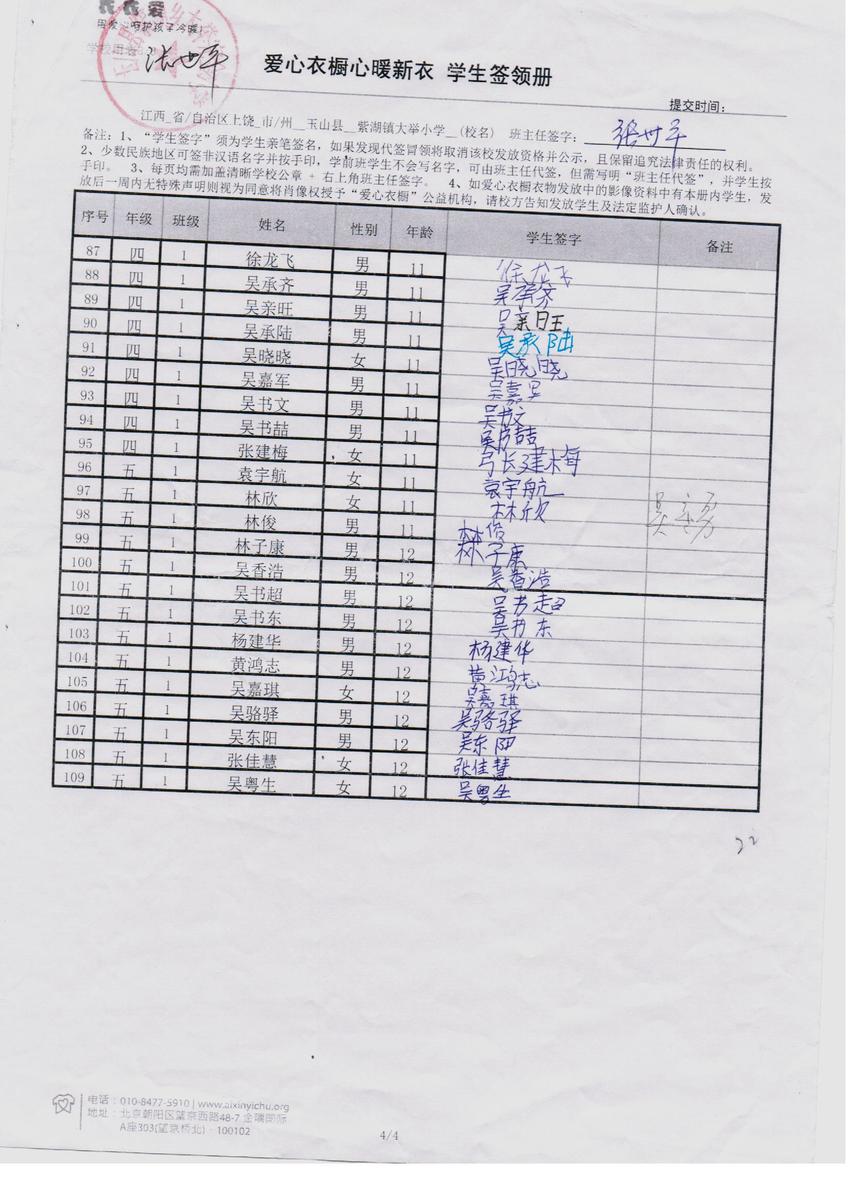 衣 爱
用爱心呵护孩子冷暖!
张世平
爱心衣橱心暖新衣 学生签领册
提交时间:
江西_省/自治区上饶_市/州__玉山县__紫湖镇大举小学__(校名) 班主任签字: 张世平
备注:1、“学生签字”须为学生亲笔签名,如果发现代签冒领将取消该校发放资格并公示,且保留追究法律责任的权利。
2、少数民族地区可签非汉语名字并按手印,学前班学生不会写名字,可由班主任代签,但需写明“班主任代签”,并学生按
手印。 3、每页均需加盖清晰学校公章 + 右上角班主任签字。 4、如爱心衣橱衣物发放中的影像资料中有本册内学生,发
放后一周内无特殊声明则视为同意将肖像权授予“爱心衣橱”公益机构,请校方告知发放学生及法定监护人确认。
序号 年级 班级 姓名 性别 年龄 学生签字 备注
87 四 1 徐龙飞 男 11 徐龙飞
88 四 1 吴承齐 男 11 吴承齐
89 四 1 吴亲旺 男 11 吴亲旺
90 四 1 吴承陆 男 11 吴承陆
91 四 1 吴晓晓 女 11 吴晓晓
92 四 1 吴嘉军 男 11 吴嘉军
93 四 1 吴书文 男 11 吴书文
94 四 1 吴书喆 男 11 吴书喆
95 四 1 张建梅 女 11 张建梅
96 五 1 袁宇航 女 11 袁宇航
97 五 1 林欣 女 11 林欣
98 五 1 林俊 男 11 林俊
99 五 1 林子康 男 12 林子康
100 五 1 吴香浩 男 12 吴香浩
101 五 1 吴书超 男 12 吴书超
102 五 1 吴书东 男 12 吴书东
103 五 1 杨建华 男 12 杨建华
104 五 1 黄鸿志 男 12 黄鸿志
105 五 1 吴嘉琪 女 12 吴嘉琪
106 五 1 吴骆驿 男 12 吴骆驿
107 五 1 吴东阳 男 12 吴东阳
108 五 1 张佳慧 女 12 张佳慧
109 五 1 吴粤生 女 12 吴粤生
22
电话:010-8477-5910 | www.aixinyichu.org
地址:北京朝阳区望京西路48-7 金瑞国际
A座303(望京桥北)· 100102
4/4